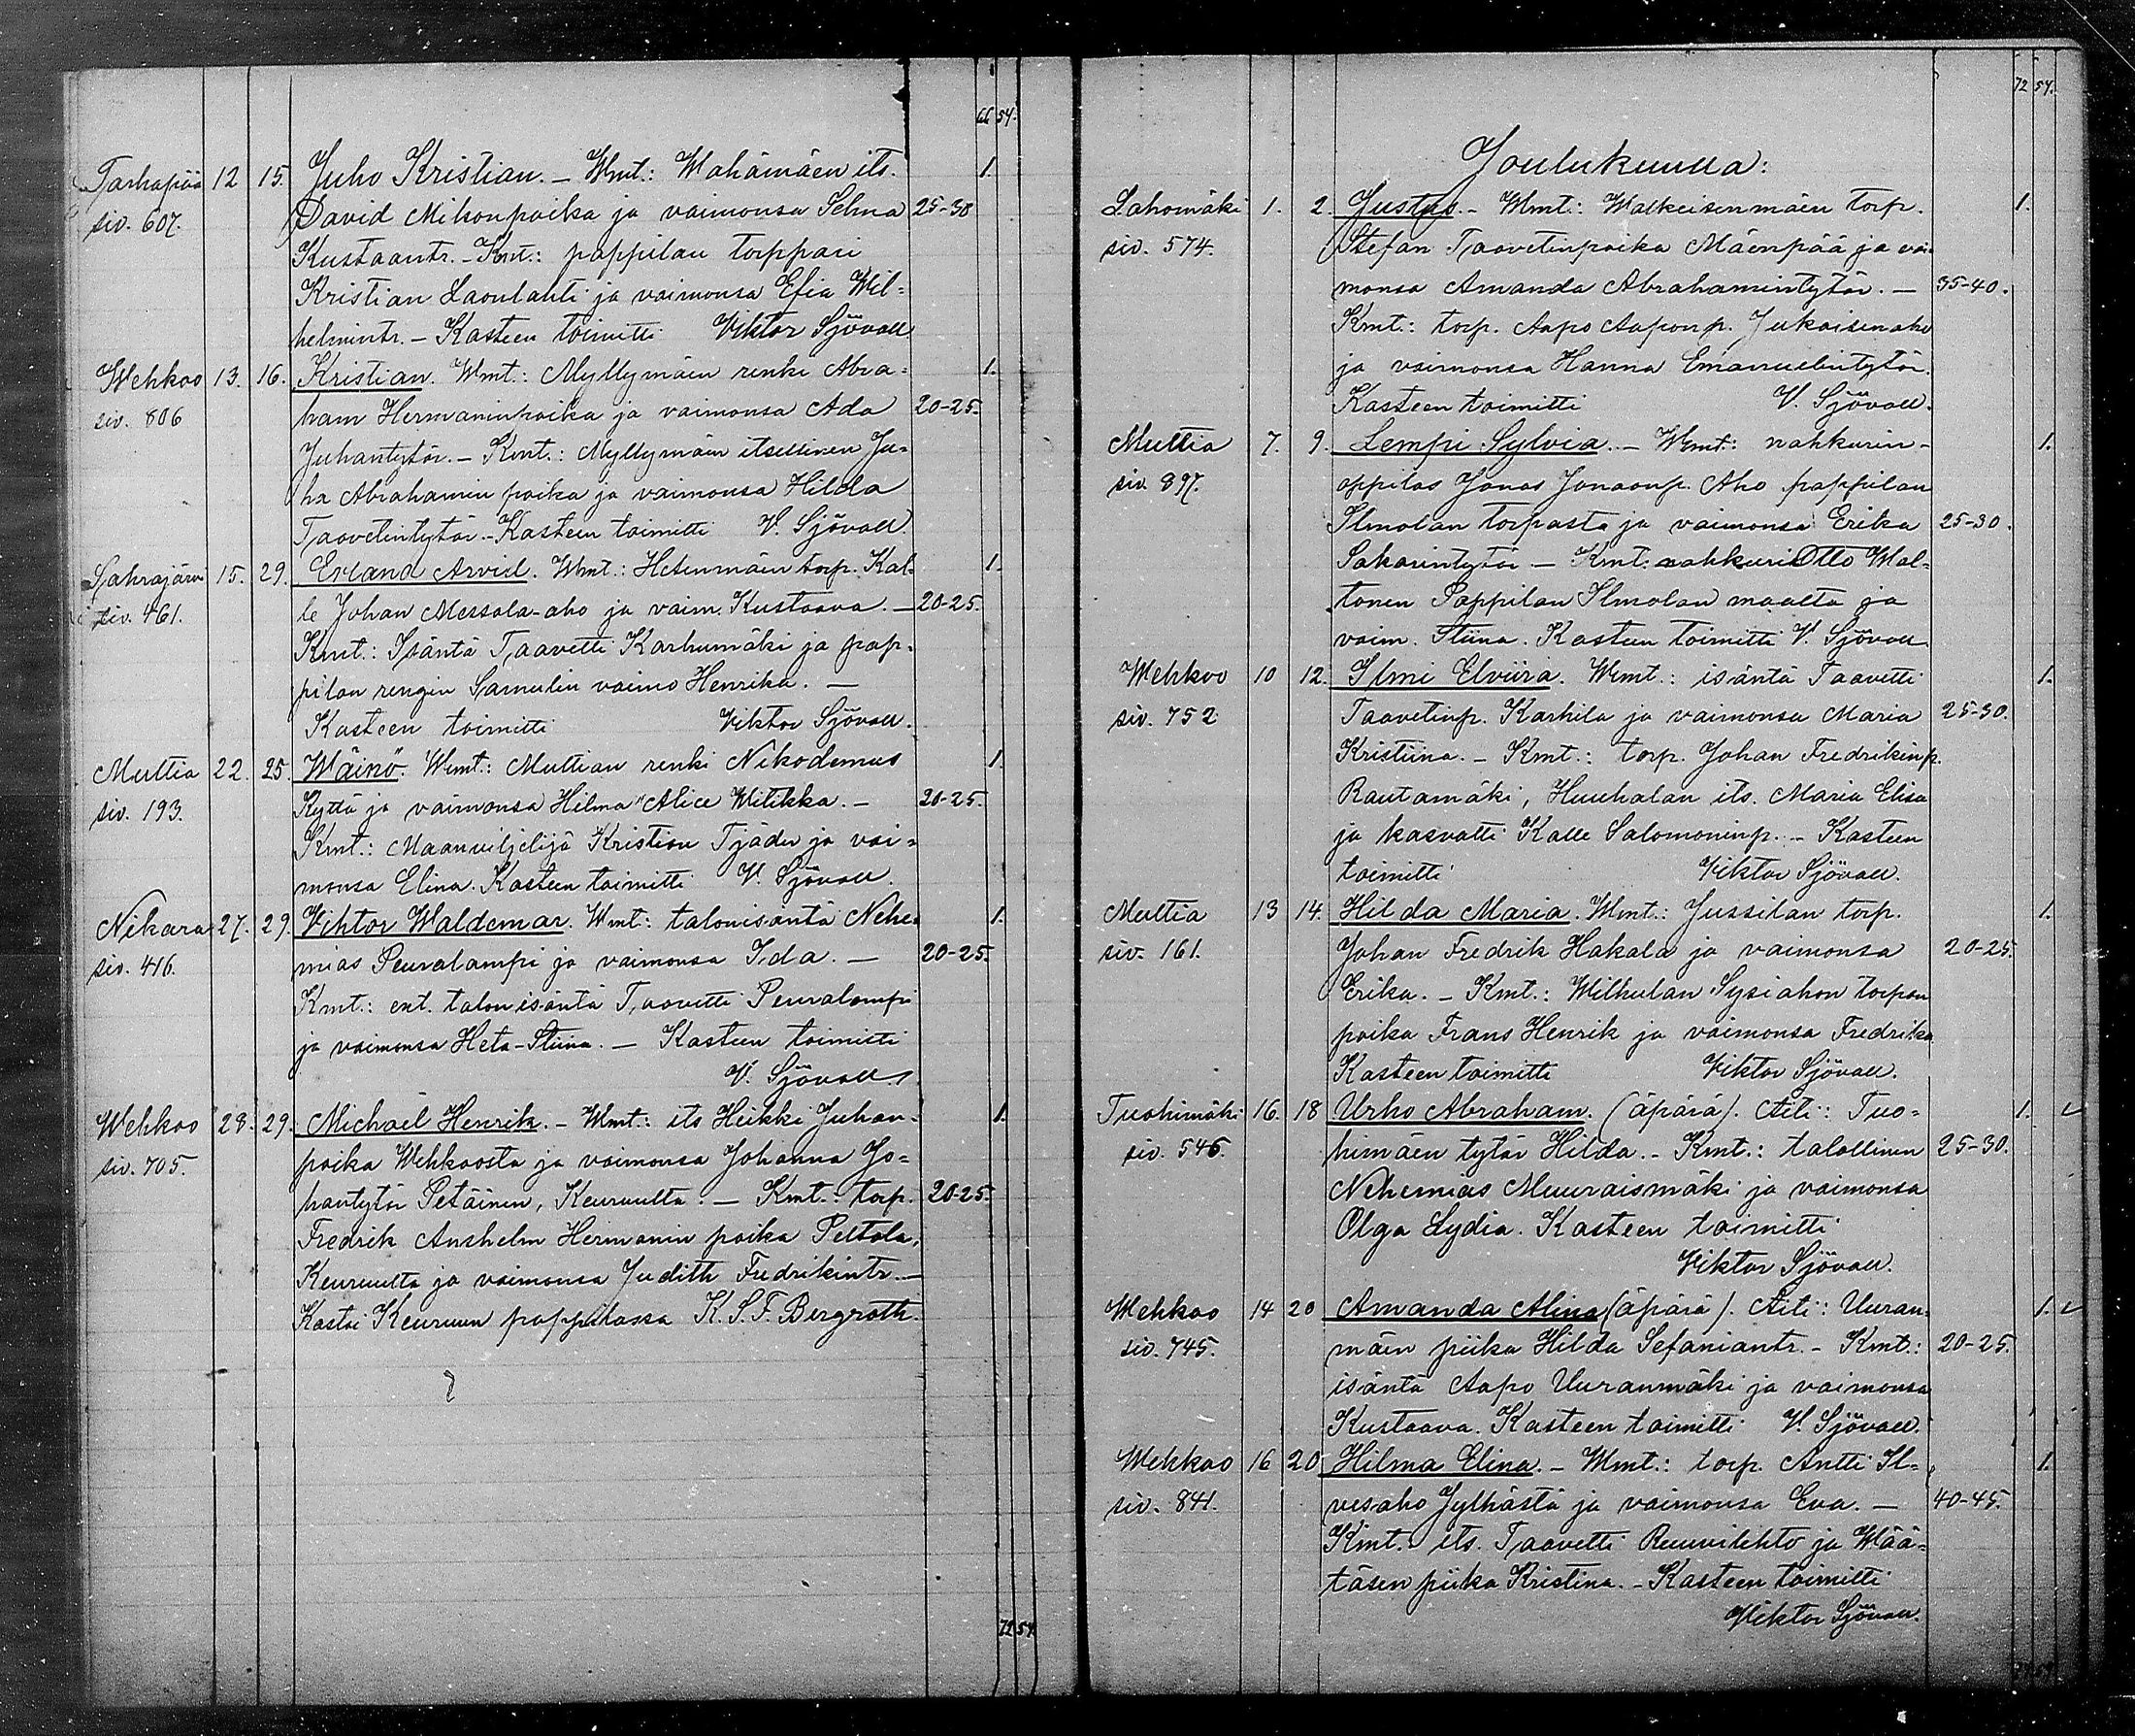 66 54.
Tarhapää 12 15. Juho Kristian. – Wmt.: Wahämäen its. 1.
siv. 607. David Milsonpoika ja vaimonsa Selma 25-30
Kustaantr. – Kmt.: pappilan torppari
Kristian Laonlahti ja vaimonsa Efia Wil=
helmintr. – Kasteen toimitti Viktor Sjövall.
Wehkoo 13. 16. Kristian. Wmt.: Myllymäen renki Abra= 1.
siv. 806 ham Hermaninpoika ja vaimonsa Ada 20-25.
Juhantytär. – Kmt.: Myllymäen itsellinen Ju=
ha Abrahamin poika ja vaimonsa Hilda
Taavetintytär. – Kasteen toimitti V. Sjövall.
Sahrajärvi 15. 29. Erland Arvid. Wmt.: Hetenmäen torp. Kal= 1.
siv. 461. le Johan Messola-aho ja vaim. Kustaava. – 20-25.
Kmt.: Isäntä Taavetti Karhumäki ja pap=
pilan rengin Samulin vaimo Henrika. –
Kasteen toimitti Viktor Sjövall.
Multia 22. 25. Wäinö. Wmt.: Multian renki Nikodemus 1.
siv. 193. Kyttä ja vaimonsa Hilma Alice Witikka. – 20-25.
Kmt.: Maanviljelijä Kristian Tjäder ja vai=
monsa Elina. Kasteen toimitti V. Sjövall.
Nikara 27. 29. Vihtor Waldemar. Wmt.: talonisäntä Nehe= 1.
siv. 416. mias Peuralampi ja vaimonsa Ida. – 20-25.
Kmt.: ent. talonisäntä Taavetti Peuralampi
ja vaimonsa Heta-Stiina. – Kasteen toimitti
V. Sjövall.
Wehkoo 28. 29. Michaël Henrik. – Wmt.: its Heikki Juhan= 1.
siv. 705. poika Wehkoosta ja vaimonsa Johanna Jo=
hantytär Petäinen, Keuruulta. – Kmt.: torp. 20-25.
Fredrik Anshelm Hermanin poika Peltola,
Keuruulta ja vaimonsa Judith Fredrikintr. –
Kastoi Keuruun pappilassa K. S. F. Bergroth.
72 54
72 54.
Joulukuulla:
Lahomäki 1. 2. Justus. – Wmt.: Walkeisenmäen torp. 1.
siv. 574. Stefan Taavetinpoika Mäenpää ja vai
monsa Amanda Abrahamintytär. – 35-40.
Kmt.: torp. Aapo Aaponp. Jukaisenaho
ja vaimonsa Hanna Emanuelintytär.
Kasteen toimitti V. Sjövall.
Multia 7. 9. Lempi Sylvia. – Wmt.: nahkurin- 1.
siv. 897. oppilas Jonas Jonaanp. Aho pappilan
Ilmolan torpasta ja vaimonsa Erika 25-30.
Sakarintytär – Kmt: nahkuri Otto Wal=
tonen Pappilan Ilmolan maalta ja
vaim. Stiina. Kasteen toimitti V. Sjövall
Wehkoo 10 12. Ilmi Elviira. Wmt.: isäntä Taavetti 1.
siv. 752 Taavetinp. Karhila ja vaimonsa Maria 25-30.
Kristiina. – Kmt.: torp. Johan Fredrikinp.
Rautamäki, Huuhalan its. Maria Elisa
ja kasvatti Kalle Salomoninp. – Kasteen
toimitti Viktor Sjövall.
Multia 13 14. Hilda Maria. Wmt.: Jussilan torp. 1.
siv. 161. Johan Fredrik Hakala ja vaimonsa 20-25.
Erika. – Kmt.: Wilhulan Sysiahon torpan
poika Frans Henrik ja vaimonsa Fredrika
Kasteen toimitti Viktor Sjövall.
Tuohimäki 16. 18 Urho Abraham. (äpärä). Äiti: Tuo= 1.
siv. 546. himäen tytär Hilda. – Kmt.: talollinen 25-30.
Nehemias Muuraismäki ja vaimonsa
Olga Lydia. Kasteen toimitti
Viktor Sjövall.
Wehkoo 14 20 Amanda Alina (äpärä). Äiti: Uuran= 1.
siv. 745. mäen piika Hilda Sefaniantr. – Kmt.: 20-25.
isäntä Aapo Uuranmäki ja vaimonsa
Kustaava. Kasteen toimitti V. Sjövall.
Wehkoo 16 20 Hilma Elina. – Wmt.: torp. Antti Il= 1.
siv. 841. vesaho Jylhästä ja vaimonsa Eva. – 40-45.
Kmt.: its. Taavetti Reuvilehto ja Wää=
täsen piika Kristina. – Kasteen toimitti
Viktor Sjövall.